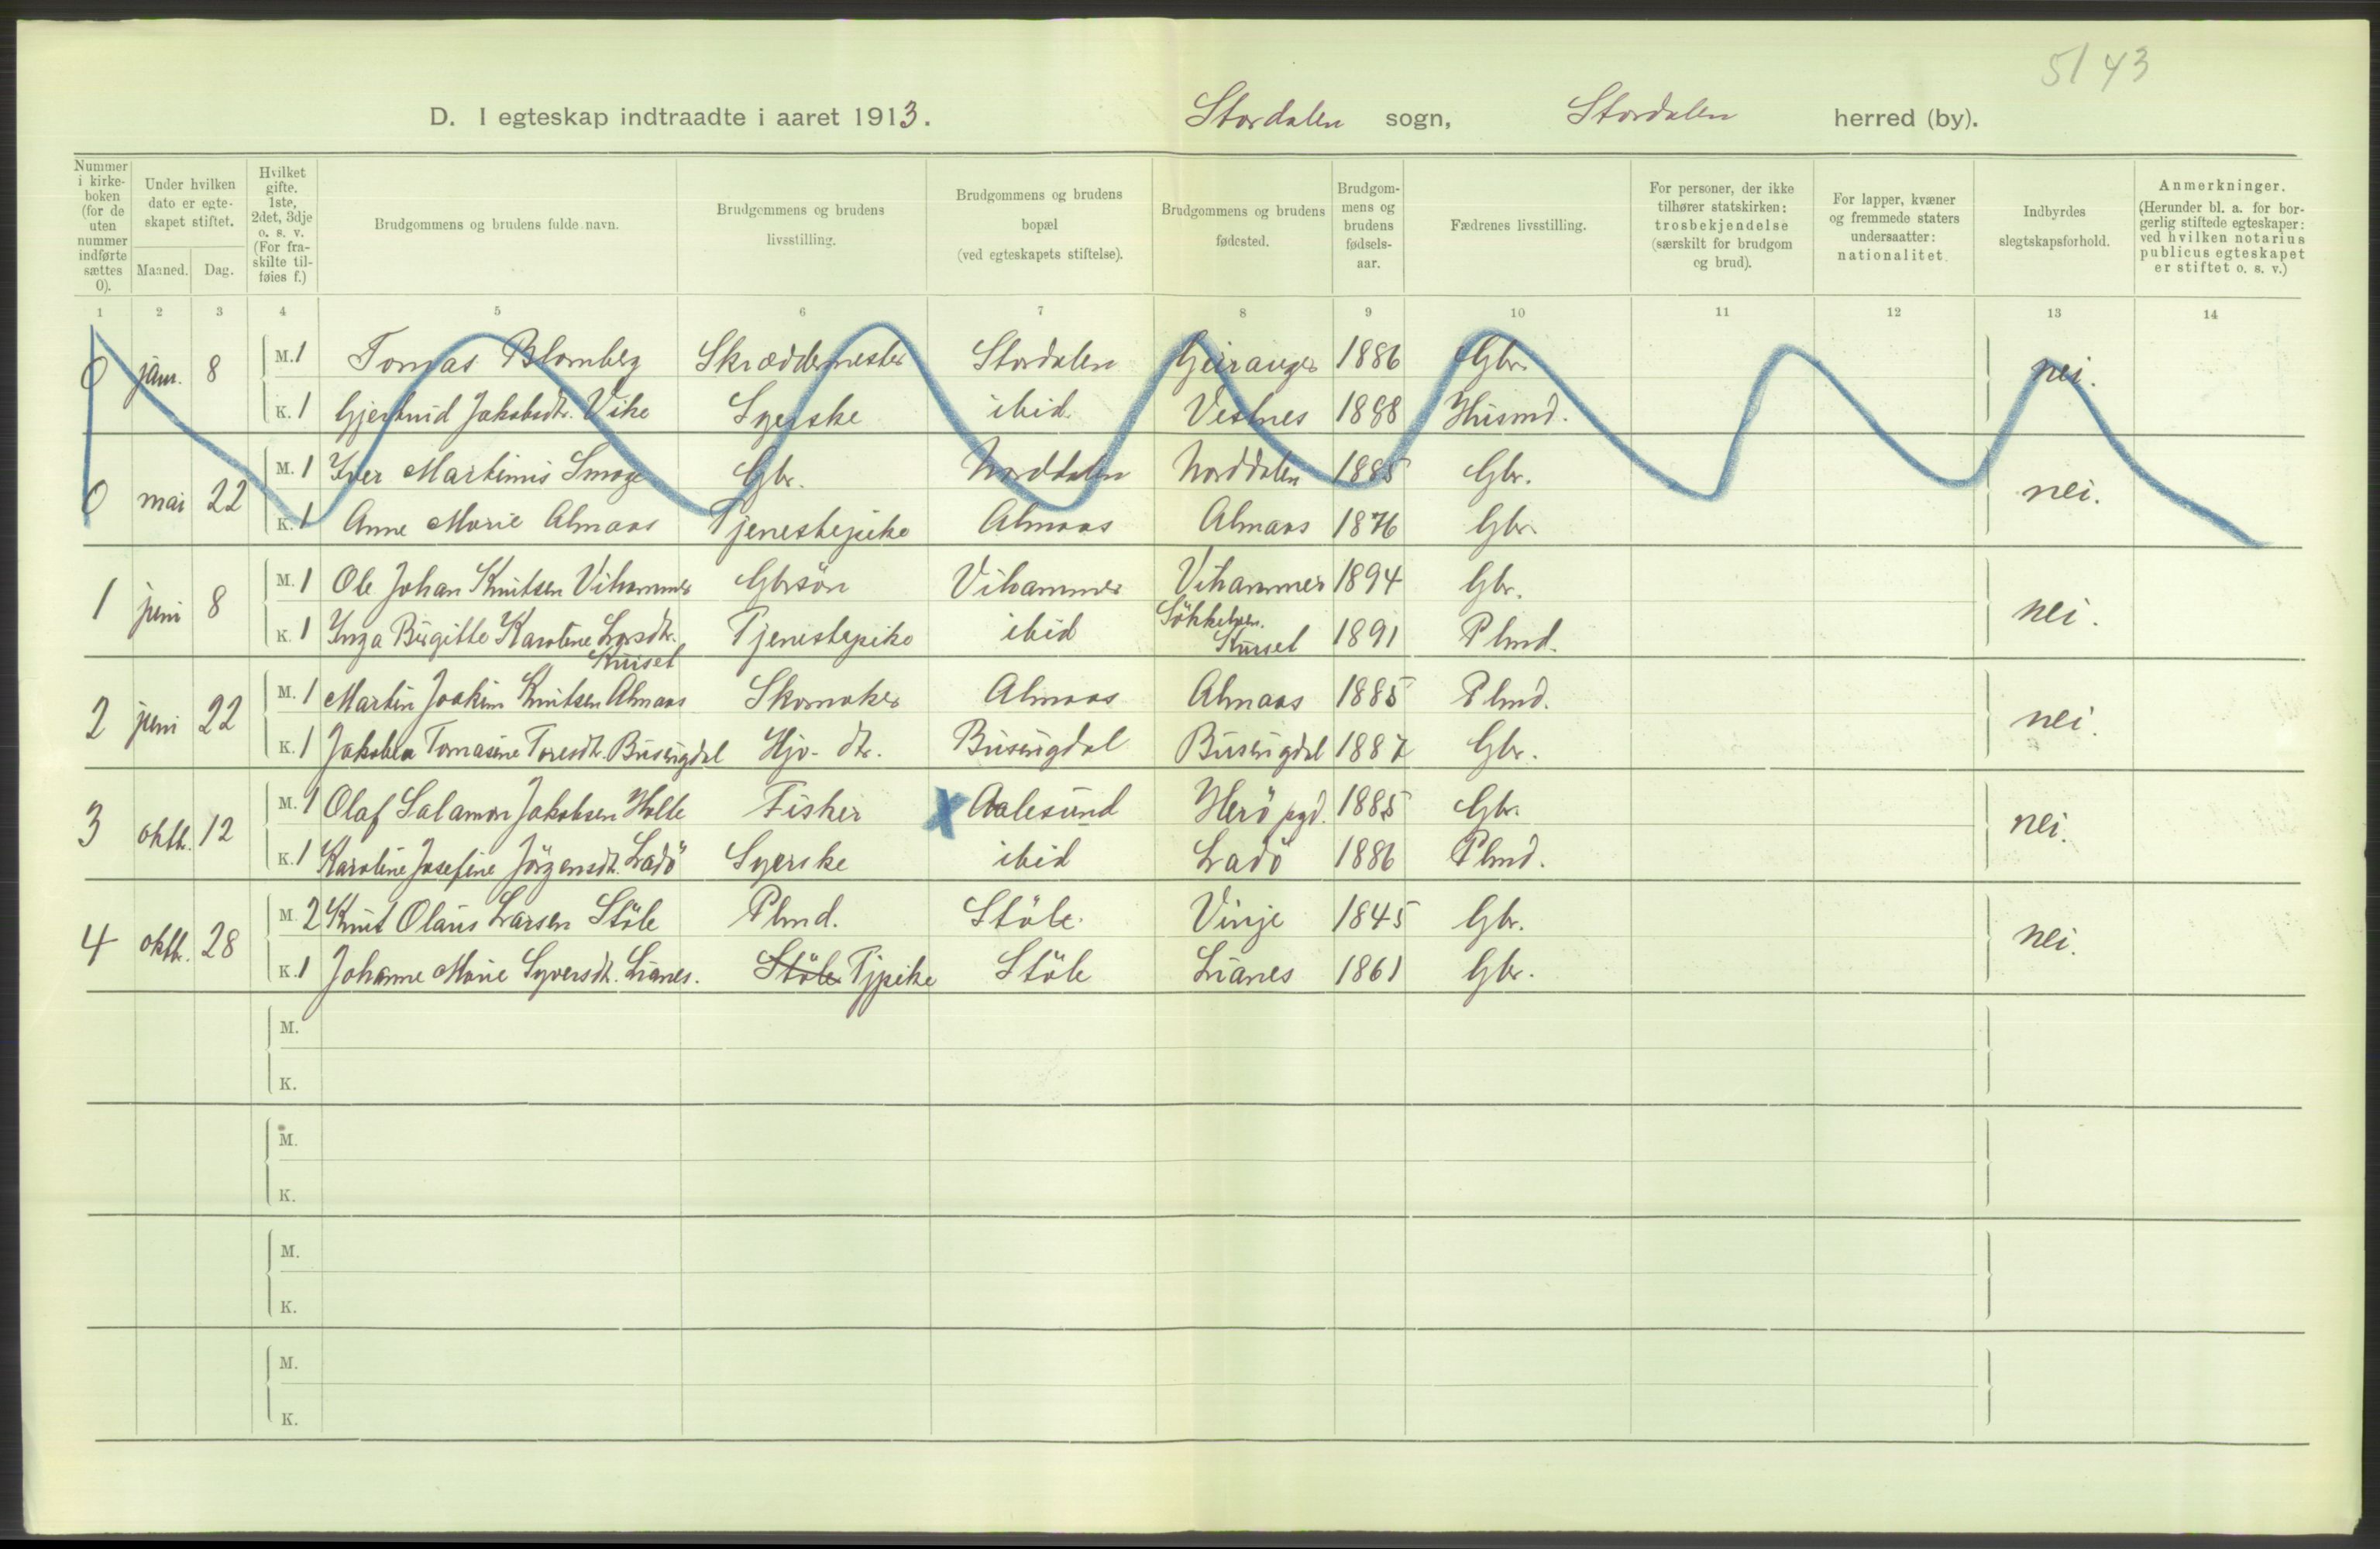 51 43
D. I egteskap indtraadte i aaret 1913. Stordalen sogn, Stordalen herred (by).
Nummer i kirkeboken (for de uten nummer indførte sættes 0).
Under hvilken dato er egteskapet stiftet.
Maaned. Dag.
Hvilket gifte. 1ste, 2det, 3dje o. s. v. (For fraskilte tilføies f.)
Brudgommens og brudens fulde navn.
Brudgommens og brudens livsstilling.
Brudgommens og brudens bopæl (ved egteskapets stiftelse).
Brudgommens og brudens fødested.
Brudgommens og brudens fødselsaar.
Fædrenes livsstilling.
For personer, der ikke tilhører statskirken: trosbekjendelse (særskilt for brudgom og brud).
For lapper, kvæner og fremmede staters undersaatter: nationalitet.
Indbyrdes slegtskapsforhold.
Anmerkninger. (Herunder bl. a. for borgerlig stiftede egteskaper: ved hvilken notarius publicus egteskapet er stiftet o. s. v.)
1 2 3 4 5 6 7 8 9 10 11 12 13 14
0 jan. 8 M. 1 Tomas Blomberg Skræddermester Stordalen Geiranger 1886 Gbr. nei.
K. 1 Gjertrud Jakobsdtr. Vike Syerske ibid. Vestnes 1888 Husmd.
0 mai 22 M. 1 Iver Martinus Smoge Gbr. Norddalen Norddalen 1885 Gbr. nei.
K. 1 Anne Marie Almaas Tjenestepike Almaas Almaas 1876 Gbr.
1 juni 8 M. 1 Ole Johan Knutsen Vihammer Gbrsön Vihammer Vihammer 1894 Gbr. nei.
K. 1 Inga Birgitte Karoline Larsdtr. Kurset Tjenestepike ibid Sökkelven. Kurset 1891 Plmd.
2 juni 22 M. 1 Martin Joakim Knutsen Almaas Skomaker Almaas Almaas 1885 Plmd. nei.
K. 1 Jakobea Tomasine Toresdtr. Busengdal Hjv. dtr. Busengdal Busengdal 1887 Gbr.
3 oktb. 12 M. 1 Olaf Salamon Jakobsen Holte Fisker X Aalesund Herö pgd. 1885 Gbr. nei.
K. 1 Karoline Josefine Jörgensdt. Ladö Syerske ibid Ladö 1886 Plmd.
4 oktb. 28 M. 2 Knut Olaus Larsen Stöle Plmd. Stöle. Vinje 1845 Gbr. nei.
K. 1 Johanne Marie Syversdt. Lianes. Stöle Tjpike Stöle Lianes 1861 Gbr.
M.
K.
M.
K.
M.
K.
M.
K.